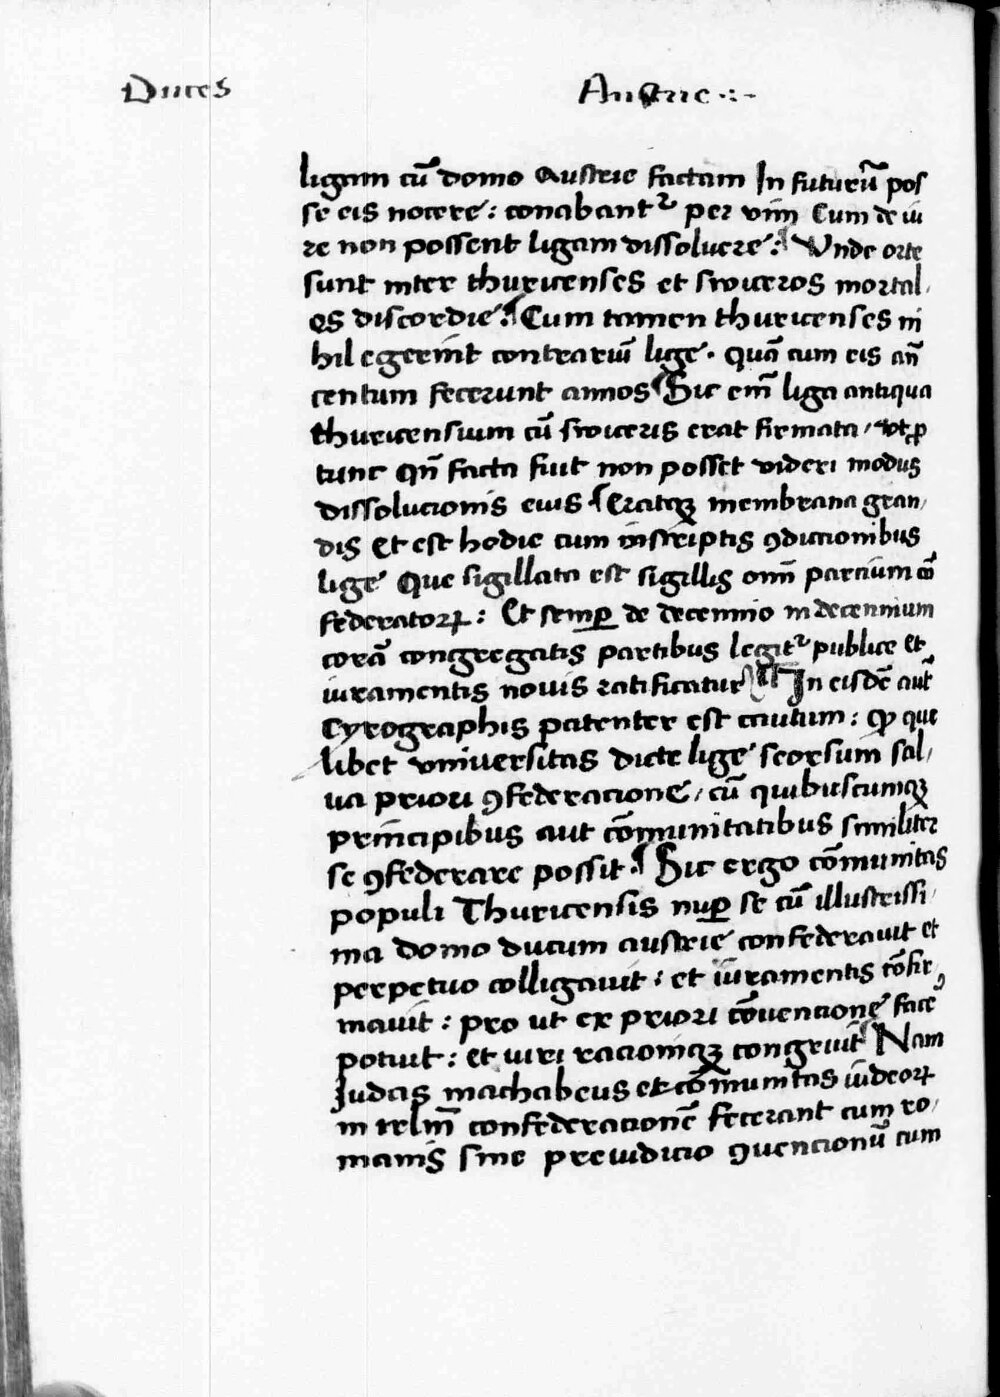 Duces Austrie .:.-
ligam cū domo Austrie factam In futurū pos
se eis nocere : conabantᷣ per vim Cum de iu
re non possent ligam dissoluere : Vnde orte
sunt inter thuricenses et swiceros mortal,
es discordie . Cum tamen thuricenses ni
hil egerint contrariū lige . quā cum eis añ
centum fecerunt annos Sic em̄ liga antiqua
thuricensium cū swiceris erat firmata , vt ꝓ
tunc qñ facta fiut non posset videri modus
dissolucionis eius . Eratqꝫ membrana gran,
dis Et est hodie cum inscriptis ꝯdicionibus
lige Que sigillata est sigillis om̄ partium cō
federatoꝝ : Et semꝑ de decennio in decennium
corā congregatis partibus legitᷣ publice et
iuramentis nouis ratificatur In eisdē aūt
Cyrographis patenter est cautum : ꝙ que
libet vniuersitas dicte lige seorsum sal,
ua priori ꝯfederacione , cū quibuscumqꝫ
principibus aut cōmunitatibus similiter
se ꝯfederare possit . Sic ergo cōmunitas
populi Thuricensis nuꝑ se cū illustrissi,
ma domo ducum austrie confederauit et
perpetuo colligauit : et iuramentis cōfir,
mauit : pro ut ex priori cōuencione facē
potuit : et iuri racioniqꝫ congruit Nam
Iudas machabeus et cōmunitas iudeoꝝ
in irlm̄ confederacionē fecerant cum ro,
manis sine preiudicio ꝯuencionū cum